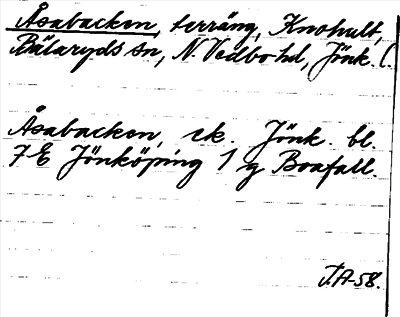 Åsabacken, terräng, Knohult,
Bälaryds sn, N. Vedbo hd, Jönk. l.
Åsabacken, ek. Jönk. bl.
7E Jönköping 1 g Boafall.
T.A-58.